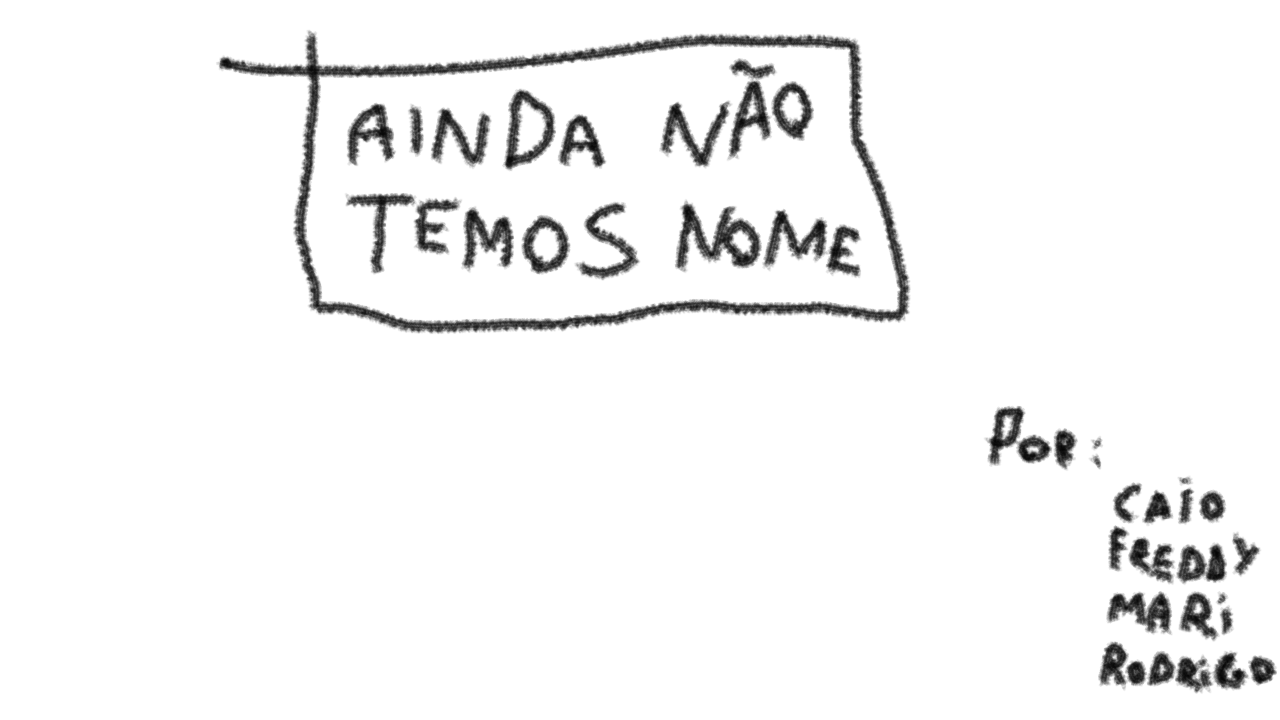 AINDA NÃO
TEMOS NOME
POR:
CAIO
FREDDY
MARI
RODRIGO